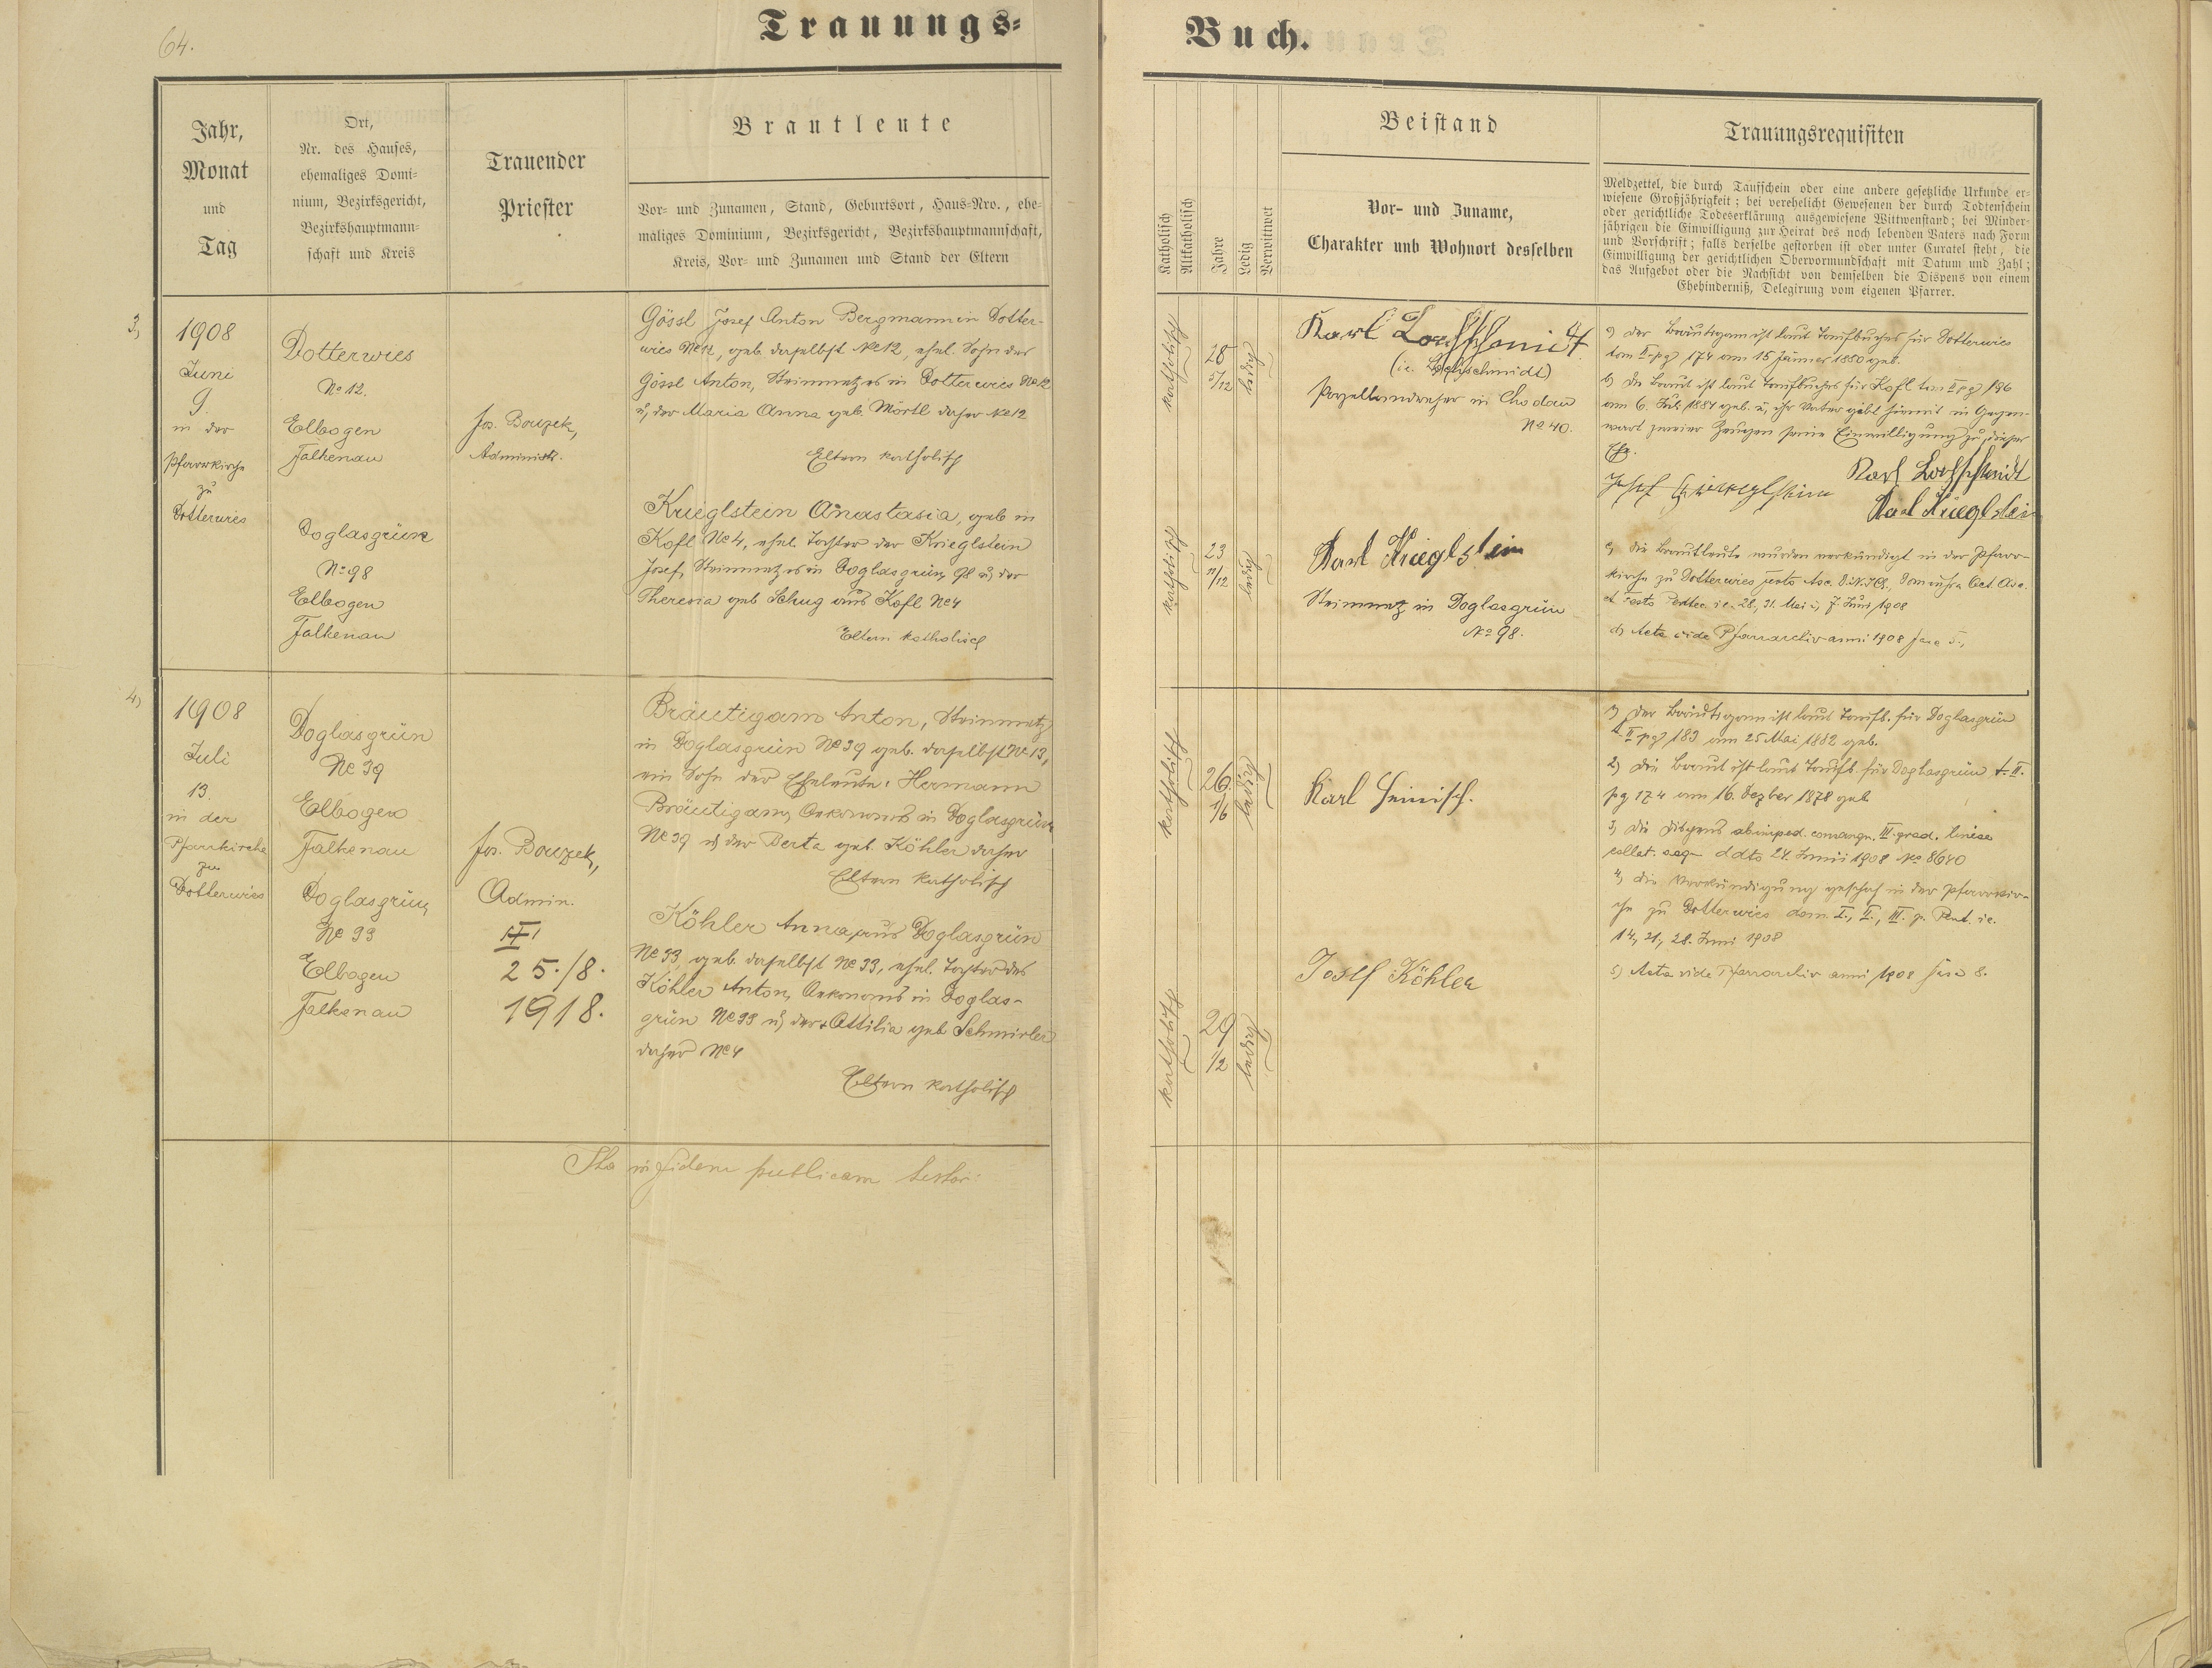 64.
Trauungs=
Buch.
Jahr,
Monat
und
Tag
Ort,
Nr. des Hauses,
ehemaliges Domi-
nium, Bezirksgericht,
Bezirkshauptmann-
schaft und Kreis
Trauender
Priester
Brautleute
Vor- und Zunamen, Stand, Geburtsort, Haus-Nro., ehe-
maliges Dominium, Bezirksgericht, Bezirkshauptmannschaft,
Kreis, Vor- und Zunamen und Stand der Eltern
Katholisch
Altkatholisch
Jahre
Ledig
Verwittwet
Beistand
Vor- und Zuname,
Charakter und Wohnort desselben
Trauungsrequisiten
Meldzettel, die durch Taufschein oder eine andere gesetzliche Urkunde er-
wiesene Großjährigkeit; bei verehelicht Gewesenen der durch Todtenschein
oder gerichtliche Todeserklärung ausgewiesene Wittwenstand; bei Minder-
jährigen die Einwilligung zur Heirat des noch lebenden Vaters nach Form
und Vorschrift; falls derselbe gestorben ist oder unter Curatel steht, die
Einwilligung der gerichtlichen Obervormundschaft mit Datum und Zahl;
das Aufgebot oder die Nachsicht von demselben die Dispens von einem
Ehehinderniß, Delegirung vom eigenen Pfarrer.
3)
1908
Juni
9.
in der
Pfarrkirche
zu
Dotterwies
Dotterwies
No 12.
Elbogen
Falkenau
Doglasgrün
No 98
Elbogen
Falkenau
Jos. Bouzek,
Administr.
Gössl Josef Anton Bergmann in Dotter-
wies No 12, geb. daselbst No 12, ehel. Sohn des
Gössl Anton, Steinmetzes in Dotterwies No 12
u. der Maria Anna geb. Mörtl daher No 12
Eltern katholisch
Krieglstein Anastasia, geb. in
Kofl No 4, ehel. Tochter der Krieglstein
Josef, Steinmetzes in Doglasgrün, 98 u. der
Theresia geb Schug aus Kofl No 4
Eltern katholisch
katholisch
28
5/12
ledig
katholisch
23
11/12
ledig
Karl Lochschmidt
(ie. Lochschmidt)
Porzellandreher in Chodau
No 40.
Karl Krieglstein
Steinmetz in Doglasgrün
No 98.
a) der Bräutigam ist laut Taufbuches für Dotterwies
tom II pg 174 am 15 Jänner 1880 geb.
b) die Braut ist laut Taufbuches für Kofl tom II pg 196
am 6. Juli 1884 geb. u. ihr Vater gibt hiemit in Gegen-
wart zweier Zeugen seine Einwilligung zu dieser
Ehe.
Karl Lochschmidt
Josef Krieglstein
Karl Krieglstein
c) die Brautleute wurden verkündigt in der Pfarr-
kirche zu Dotterwies festo Asc. D.N.J.Ch., Dom infra Oct. Asc.
et Festo Pentec. ie. 28., 31. Mai u. 7. Juni 1908
d) Acta vide Pfarrarchiv anni 1908 fasc 5.,
4)
1908
Juli
13.
in der
Pfarrkirche
zu
Dotterwies
Doglasgrün
No 39
Elbogen
Falkenau
Doglasgrün
No 33
Elbogen
Falkenau
Jos. Bouzek,
Admin.
25./8.
1918.
Bräutigam Anton, Steinmetz
in Doglasgrün No 39 geb. daselbst No 13,
ein Sohn der Eheleute: Hermann
Bräutigam, Oekonoms in Doglasgrün
No 39 u. der Berta geb. Köhler daher
Eltern katholisch
Köhler Anna aus Doglasgrün
No 33 geb. daselbst No 33, ehel. Tochter des
Köhler Anton, Oekonoms in Doglas-
grün No 33 u. der Ottilia geb Schmirler
daher No 4
Eltern katholisch
katholisch
26
1/6
ledig
katholisch
29
1/2
ledig
Karl Heinisch.
Josef Köhler
1) der Bräutigam ist laut Taufb. für Doglasgrün
t. II pg 183 am 25 Mai 1882 geb.
2) die Braut ist laut Taufb. für Doglasgrün t. II.
pg 174 am 16. Dezber 1878 geb
3) die Dispens ab imped. consangu. III grad. lineae
collat. aeq. ddto 24. Juni 1908 No 8640
4) die Verkündigung geschah in der Pfarrkir-
che zu Dotterwies dom. I., II., III. p. Pent. ie.
14., 21., 28. Juni 1908
5) Acta vide Pfarrarchiv anni 1908 fasc 8.
Ita in fidem publicam testor: